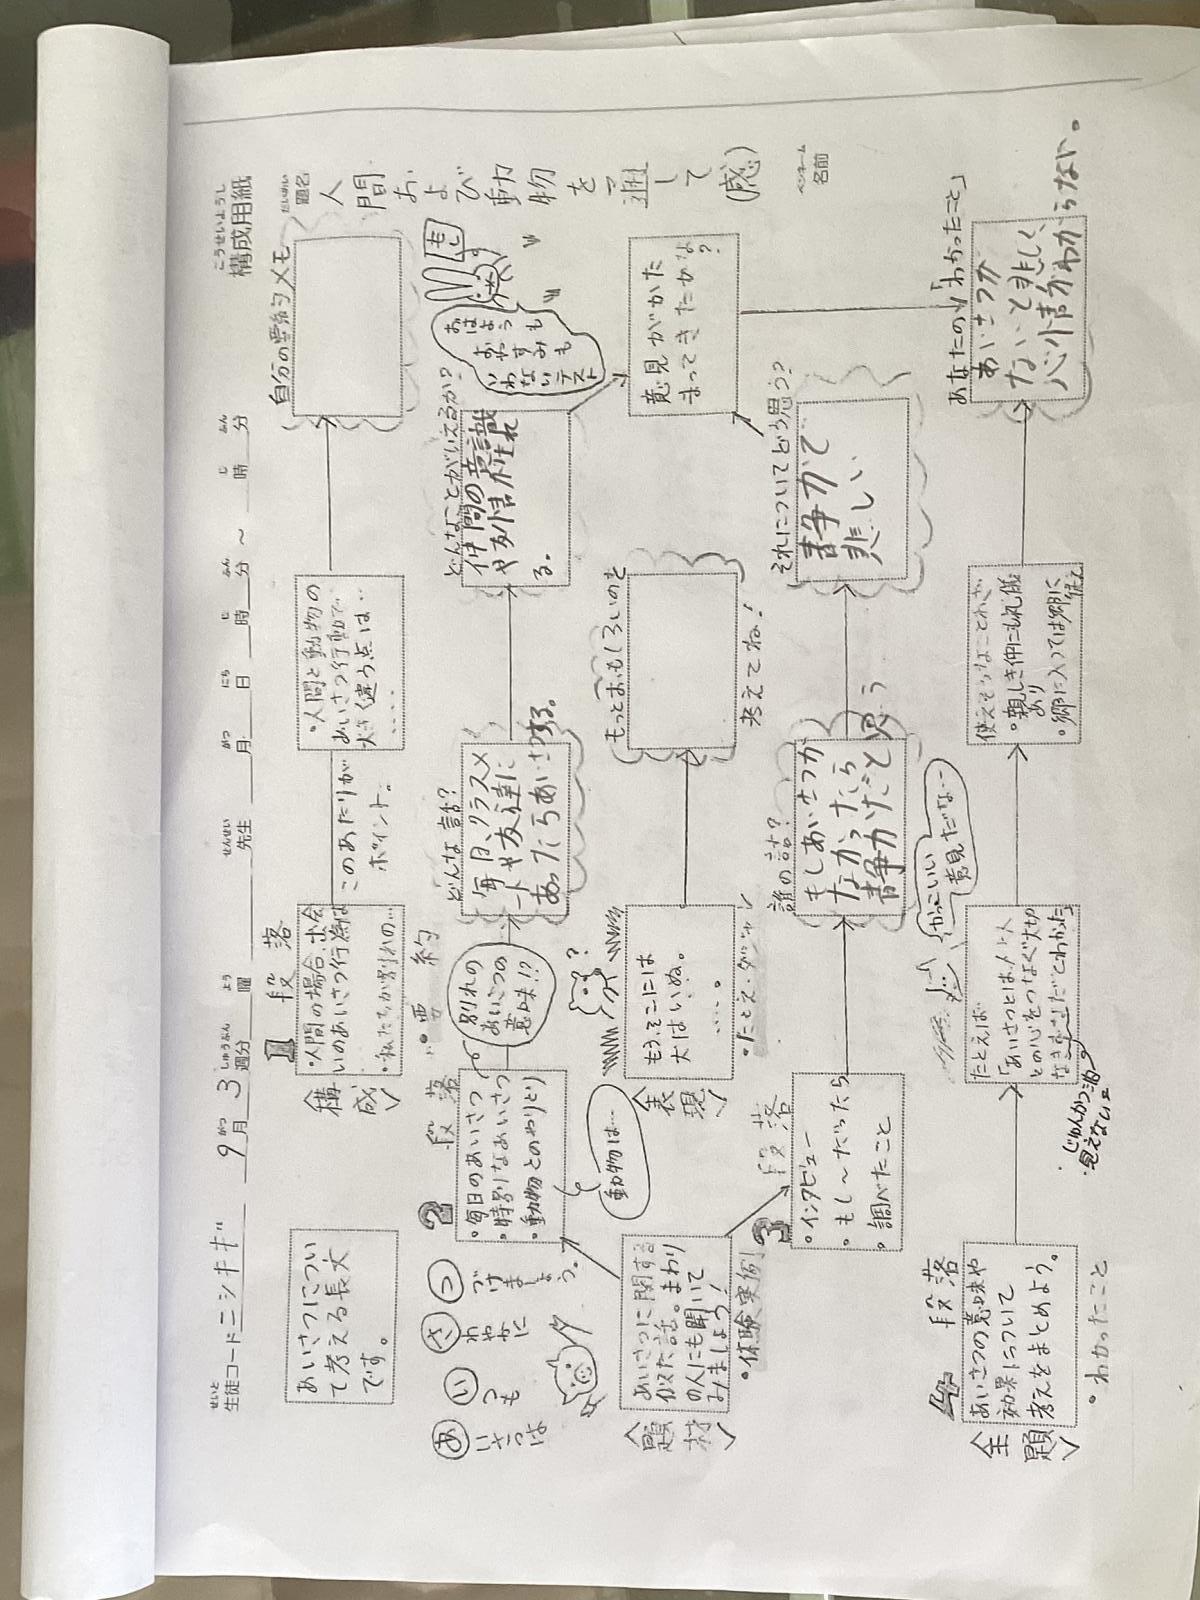 構成用紙
こうせいようし
生徒コード ニシキギ 9月 3週分 曜 先生 月 日 時 分 ~ 時 分
せいと がつ しゅうぶん よう せんせい がつ にち じ ふん じ ふん
題名
だいめい
人間および動物を通して(感)
ペンネーム
名前
あいさつについ
て考える長文
です。
1段落
〈構成〉
・人間の場合、出会
いのあいさつ行為は
・私たちが別れの…
このあたりが
ポイント。
・人間と動物の
あいさつ行動で、
大きく違う点は…
・・・・・
自分の要約メモ
あいさつは
いつも
さわやかに
つづけましょう。
2段落
・要約
・毎日のあいさつ
・特別なあいさつ
・動物とのやりとり
別れの
あいさつの
意味!?
動物は…
どんな話?
毎日、クラスメ
ートや友達に
あったらあいさつする。
どんなことがいえるか?
仲間の意識
や友情が生まれ
る。
おはようも
おやすみも
いわないテスト
もし
〈題材〉
あいさつに関する
似た話。まわり
の人にも聞いて
みましょう!
・体験実例
〈表現〉
もう、そこには
犬はいぬ。
・・・・。
・たとえ・ダジャレ
もっとおもしろいのを
考えてね!
意見がかた
まってきたかな
?
3段落
・インタビュー
・もし〜だったら
・調べたこと
誰の話?
もしあいさつが
なかったら
静かだと思う
それについてどう思う?
静かで
悲しい
4段落
〈主題〉
あいさつの意味や
効果について
考えをまとめよう。
・わかったこと
たとえば
「あいさつとは、人と人
との心をつなぐ大切
なきずなだとわかった」
じゅんかつ油
見えない
かっこいい
意見だな…
使えそうなことわざ
・親しき仲にも礼儀
あり
・郷に入っては郷に
従え
あなたの「わかったこと」
あいさつが
ないと悲しく、
心情がわからない。